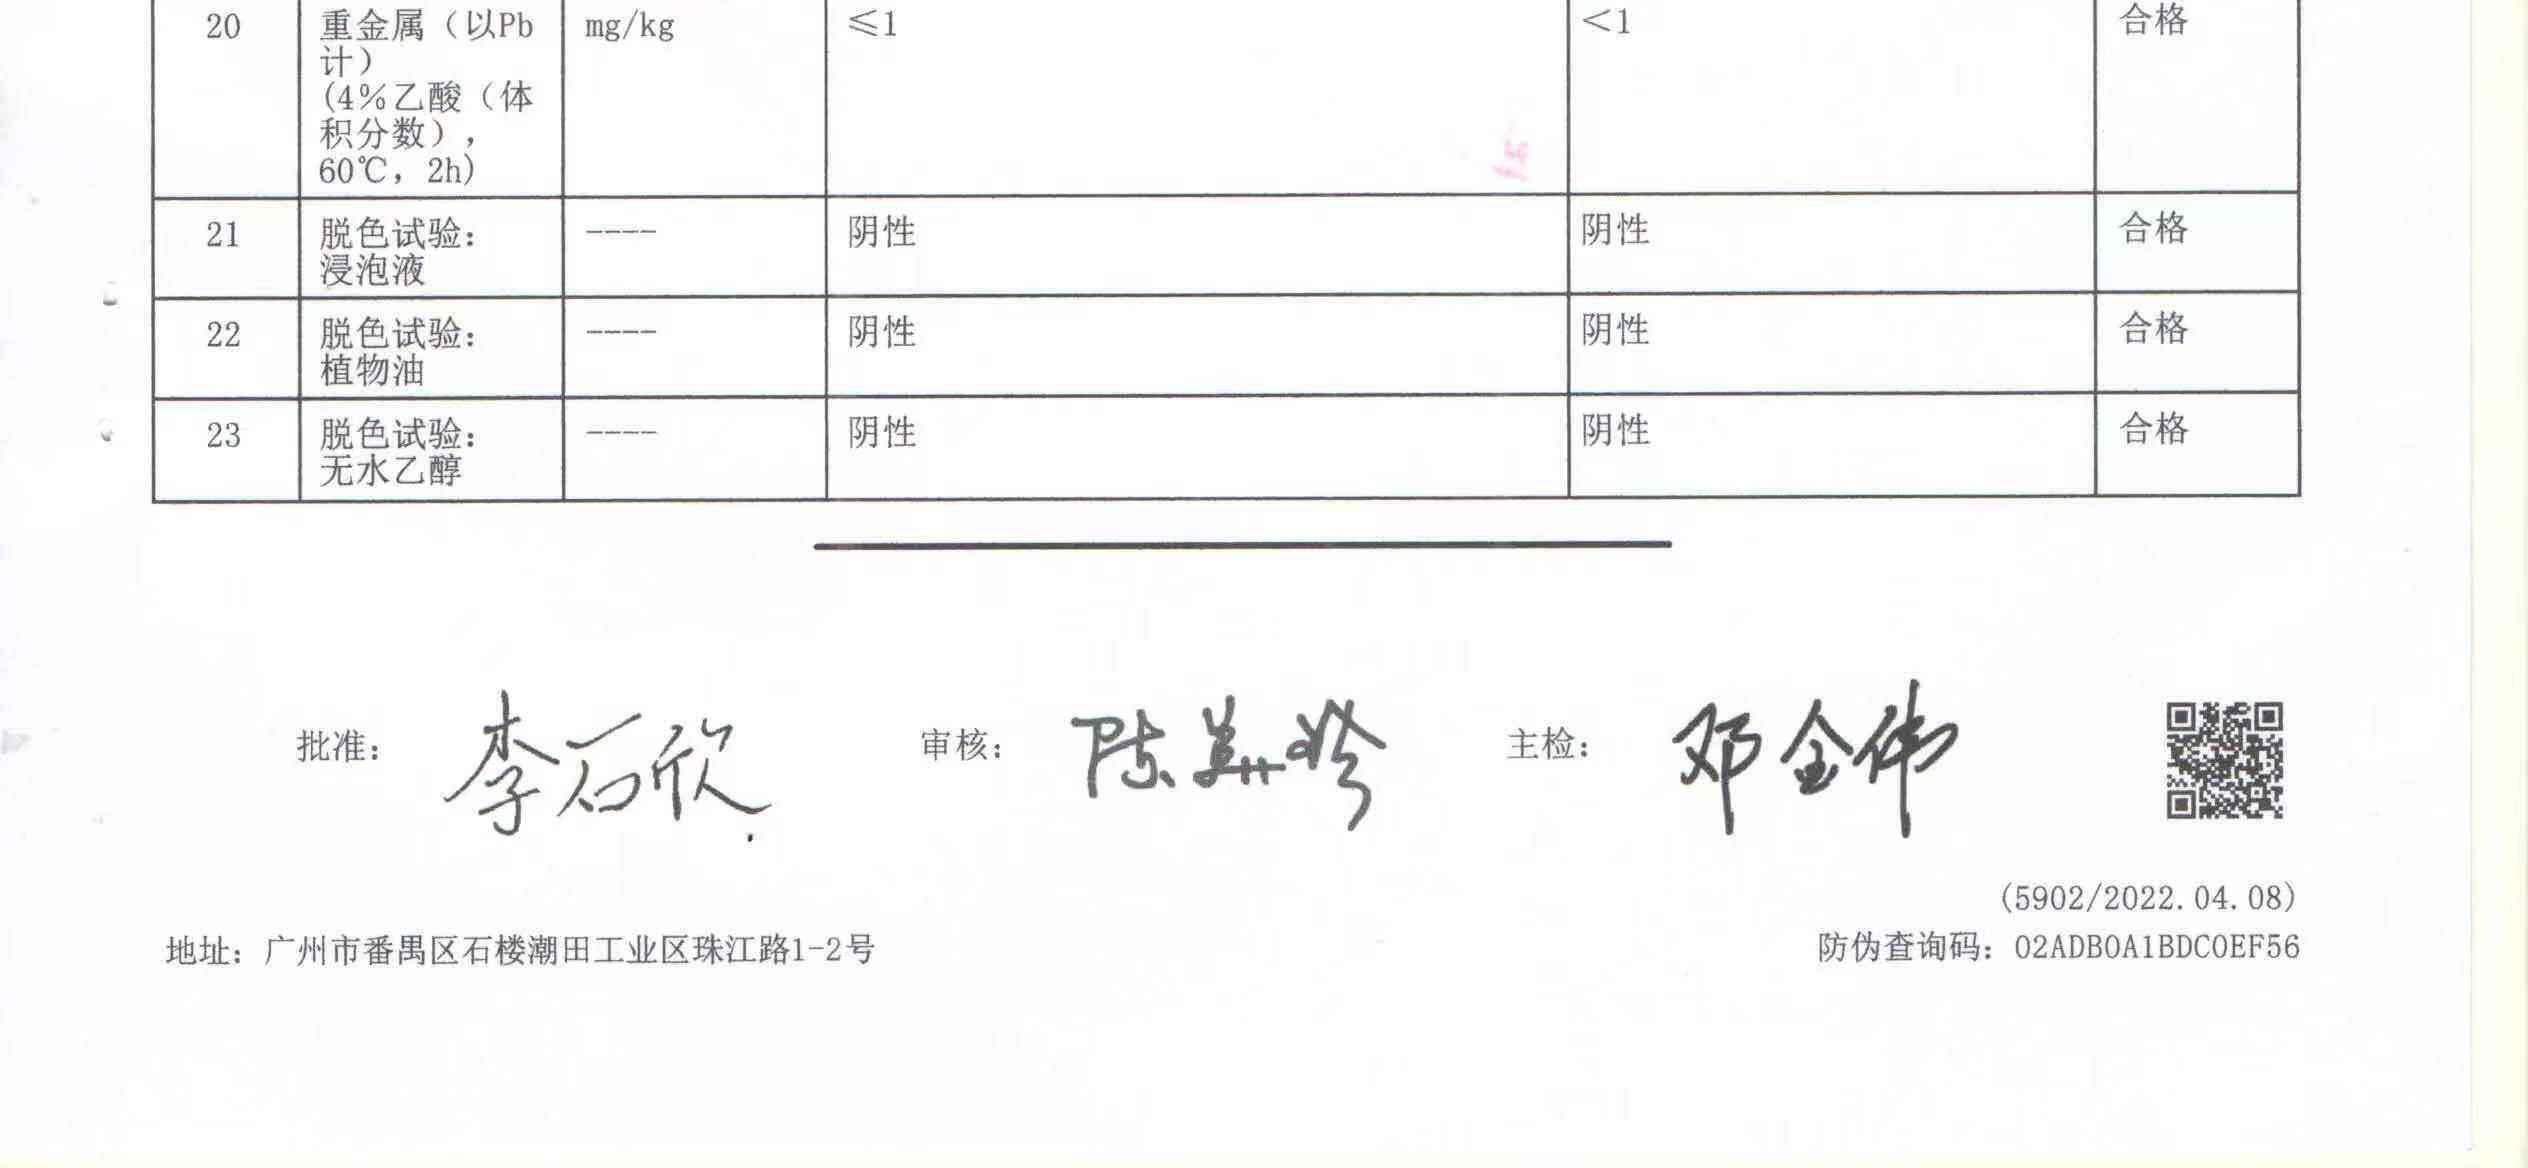 20 重金属（以Pb mg/kg ≤1 <1 合格
计）
(4%乙酸（体
积分数），
60℃，2h)
21 脱色试验： ---- 阴性 阴性 合格
浸泡液
22 脱色试验： ---- 阴性 阴性 合格
植物油
23 脱色试验： ---- 阴性 阴性 合格
无水乙醇
批准： 李石欣 审核： 陈美玲 主检： 邓金伟
(5902/2022.04.08)
地址：广州市番禺区石楼潮田工业区珠江路1-2号 防伪查询码：02ADB0A1BDC0EF56